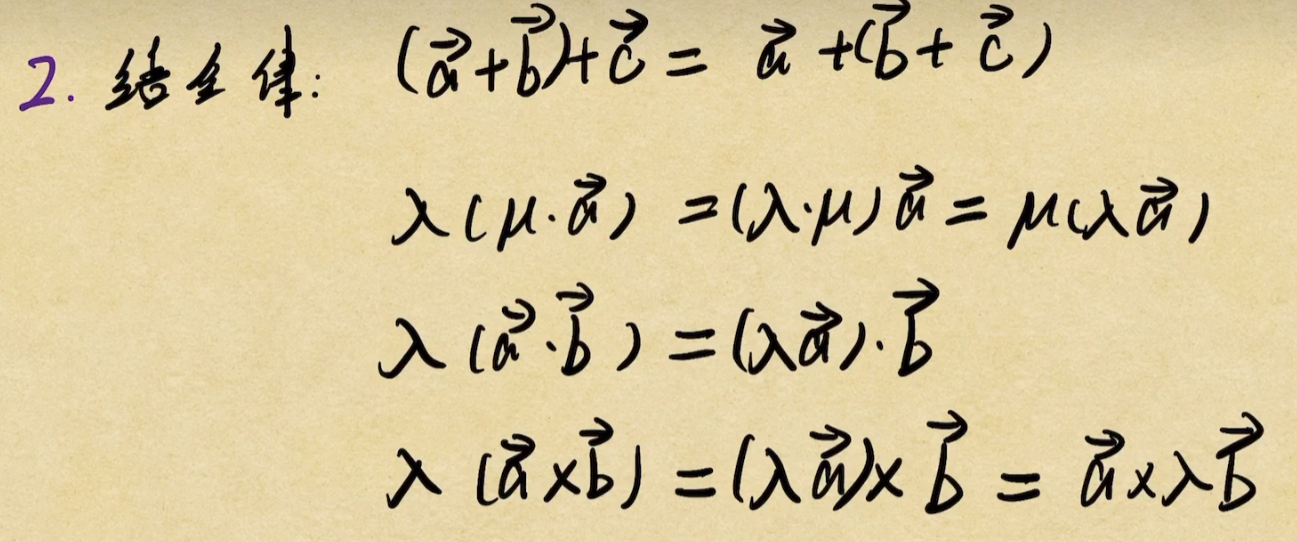 2. 结合律: (a⃗+b⃗)+c⃗ = a⃗+(b⃗+c⃗)
λ(μ·a⃗) =(λ·μ)a⃗ = μ(λa⃗)
λ(a⃗·b⃗) =(λa⃗)·b⃗
λ(a⃗×b⃗) =(λa⃗)×b⃗ = a⃗×λb⃗